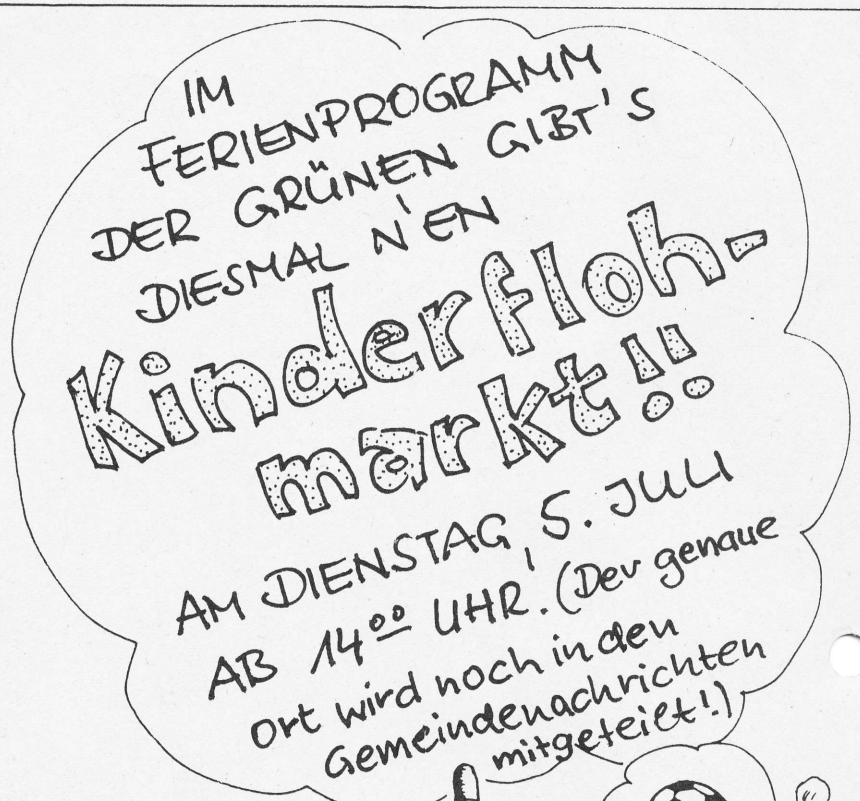 IM
FERIENPROGRAMM
DER GRÜNEN GIBT'S
DIESMAL N'EN
Kinderfloh-
markt!!
AM DIENSTAG, 5. JULI
AB 14⁰⁰ UHR! (Der genaue
Ort wird noch in den
Gemeindenachrichten
mitgeteilt!)